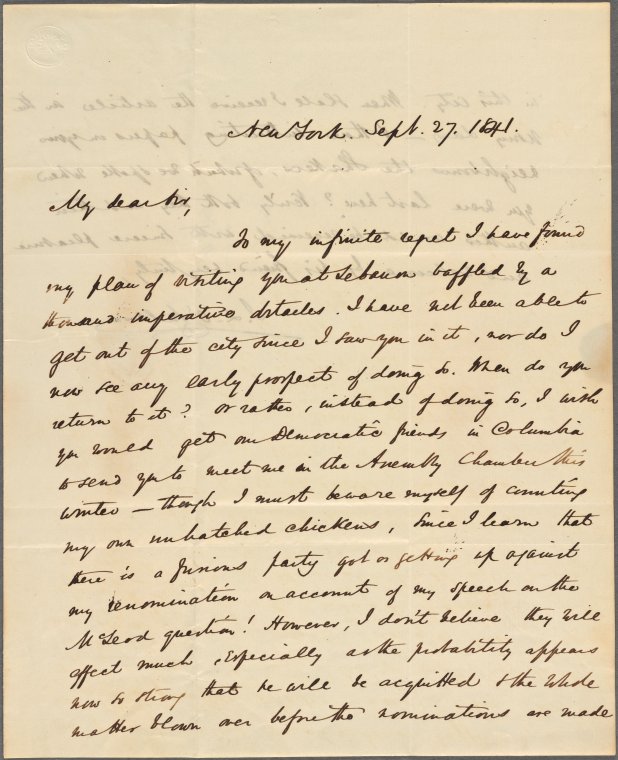 New York. Sept. 27. 1841.
My dear Sir,
To my infinite regret I have found
my plan of visiting you at Lebanon baffled by a
thousand imperative obstacles. I have not been able to
get out of the city since I saw you in it, nor do I
now see any early prospect of doing so. When do you
return to it? or rather, instead of doing so, I wish
you would get our Democratic friends in Columbia
to send you to meet me in the Assembly Chamber this
winter — though I must beware myself of counting
my own unhatched chickens, since I learn that
there is a furious party got or getting up against
my renomination on account of my speech on the
McLeod question! However, I don't believe they will
effect much, especially as the probability appears
now so strong that he will be acquitted & the whole
matter blown over before the nominations are made